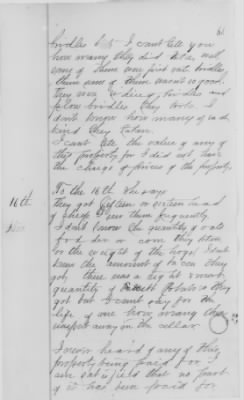 61
bridles but I can't tell you
how many they did take, and
some of them were first rate bridles,
there some of them wasn't so good.
They were riding bridles and
plow bridles they took. I
don't know how many of each
kind they taken.
I can't tell the value of any of
this property for I did not have
the charge of prices of the property.
To the 16th he says
16th
they got fifteen or sixteen head
of sheep. I saw them frequently.
I don't know the quantity of oats
fodder or corn they taken
or the weight of the hogs. I don't
know the amount of bacon they
got, there was a right smart
quantity of Potatoes they
got but I can't say for the
life of me how many they
away in the cellar
I never heard of any of this
property being paid for. I
am satisfied that no part
of it has been paid for